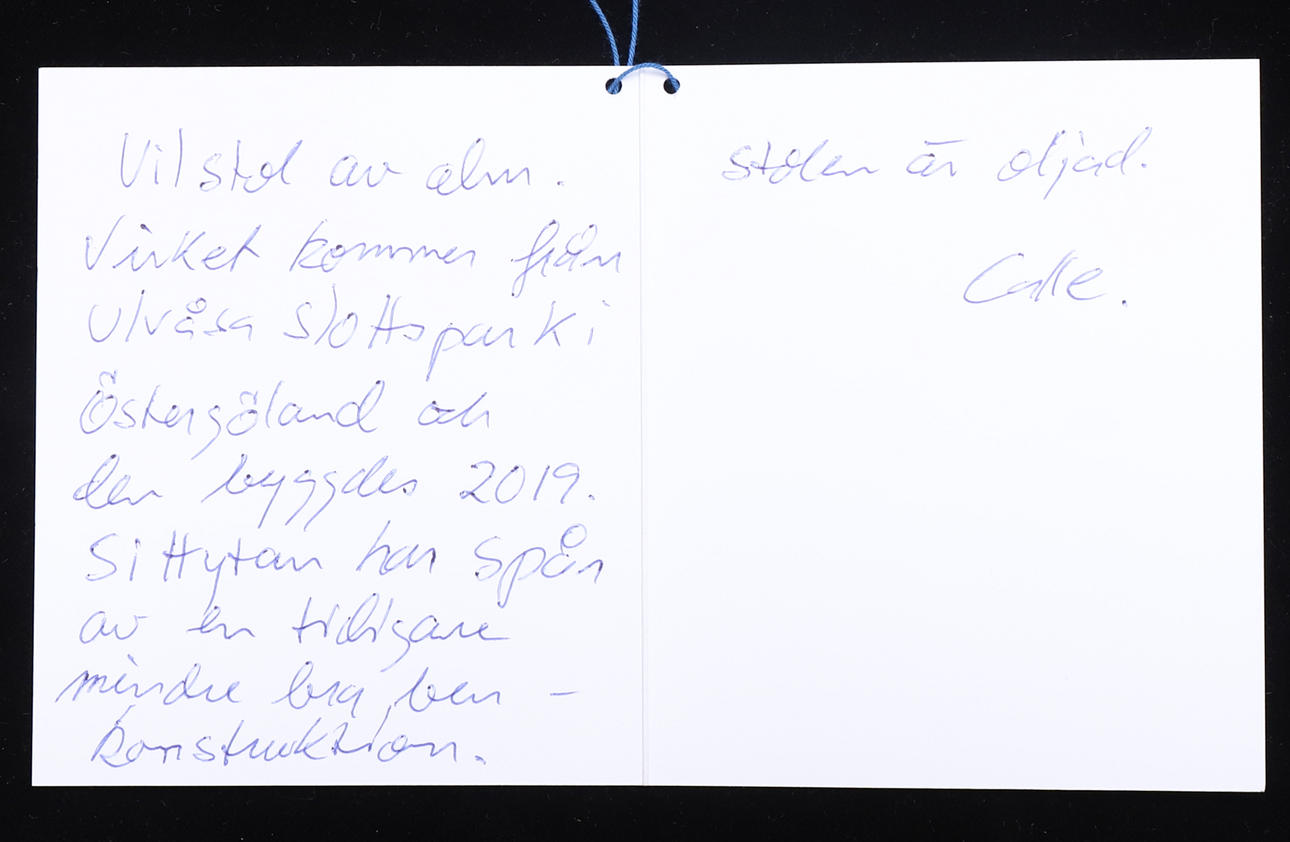 Vilstol av alm.
Virket kommer från
Ulvåsa Slottspark i
Östergöland och
den byggdes 2019.
Sittytan har spår
av en tidigare
mindre bra ben-
konstruktion.
Stolen är oljad.
Calle.